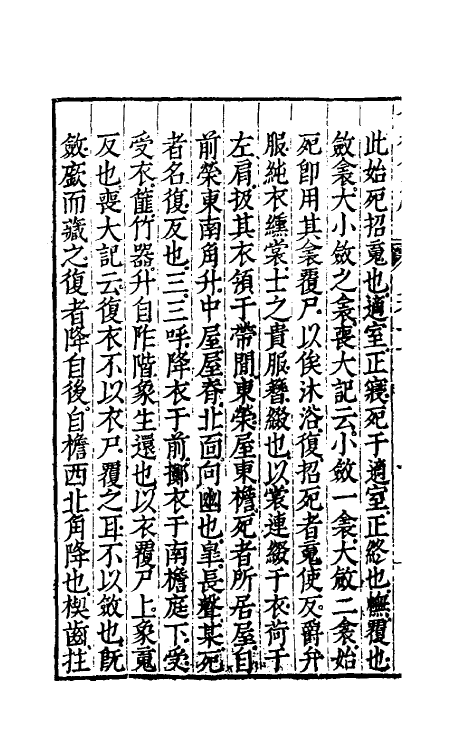 此始死招䰟也適室正寢死于適室正終也幠覆也
斂衾大小斂之衾喪大記云小斂一衾大斂二衾始
死卽用其衾覆尸以俟沐浴復招死者䰟使反爵弁
服純衣纁裳士之貴服簪綴也以裳連綴于衣荷于
左肩扱其衣領于帶間東榮屋東檐死者所居屋自
前榮東南角升中屋屋脊北面向幽也臯長聲某死
者名復反也三三呼降衣于前擲衣于南檐庭下受
受衣篚竹器升自阼階象生還也以衣覆尸上象䰟
反也喪大記云復衣不以衣尸覆之耳不以斂也旣
斂斂而藏之復者降自後自檐西北角降也楔齒拄